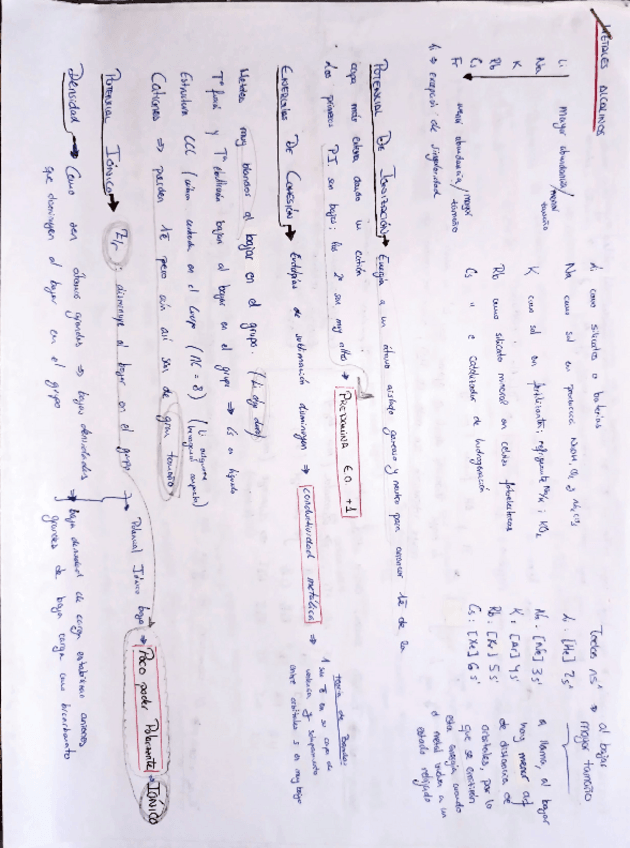 METALES ALCALINOS
Li
Na
K
Rb
Cs
Fr
mayor abundancia/menor tamaño
menor abundancia/mayor tamaño
Li como silicatos o baterías
Na como sal en
K como sal en fertilizantes; refrigerante Na/K; KO₂
Rb como silicato mineral en celdas fotoeléctricas
Cs " " e catalizador de hidrogenación
Todos ns¹ → al bajar mayor tamaño
Li: [He] 2s¹
Na: [Ne] 3s¹
K: [Ar] 4s¹
Rb: [Kr] 5s¹
Cs: [Xe] 6s¹
a llama, al bajar
hay menor
de distancia de
orbitales, por lo
que se emiten
esta energía cuando
el metal vuelve a un
estado relajado
Li → excepción de singularidad
POTENCIAL DE IONIZACIÓN → Energía a un átomo aislado gaseoso y neutro para arrancar 1e⁻ de la
capa más externa dando un catión
Los primeros P.I. son bajos; los 2º son muy altos → PREDOMINA E.O. +1
ENERGÍAS DE COHESIÓN → Entalpías de sublimación disminuyen → conductividad metálica →
Teoría de Bandas
1 solo e⁻ en su capa de
valencia y solapamiento
entre orbitales s es muy bajo
Metales muy blandos al bajar en el grupo. (Li algo duro)
Tª fusión y Tª ebullición bajan al bajar en el grupo → Cs es líquido
Estructura CCC (cúbica centrada en el cuerpo (NC = 8)) (Li hexagonal compacta)
Cationes → pierden 1e⁻ pero aún así son de gran tamaño
POTENCIAL IÓNICO → Z/r: disminuye al bajar en el grupo → Potencial Iónico bajo → Poco poder Polarizante → IÓNICO
DENSIDAD → Como son átomos grandes → bajas densidades → baja densidad de carga estabilizan aniones
que disminuyen al bajar en el grupo
grandes de baja carga como bicarbonato